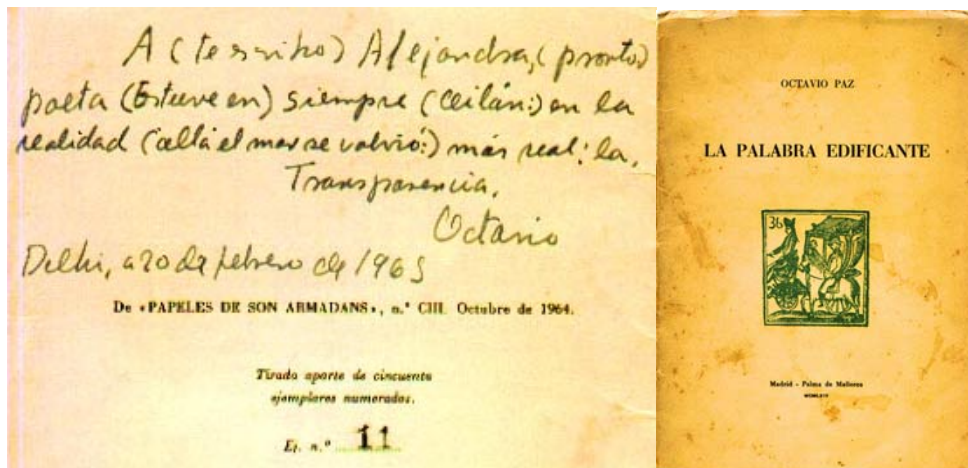 A (te escribo) Alejandra, (pronto)
poeta (Estuve en) siempre (Ceilán:) en la
realidad (allá el mar se volvió:) más real: la,
Transparencia.
Octavio
Delhi, a 20 de febrero de 1965
De «PAPELES DE SON ARMADANS», n.º CIII. Octubre de 1964.
Tirada aparte de cincuenta
ejemplares numerados.
Ej. n.º 11
OCTAVIO PAZ
LA PALABRA EDIFICANTE
36
Madrid - Palma de Mallorca
MCMLXIV